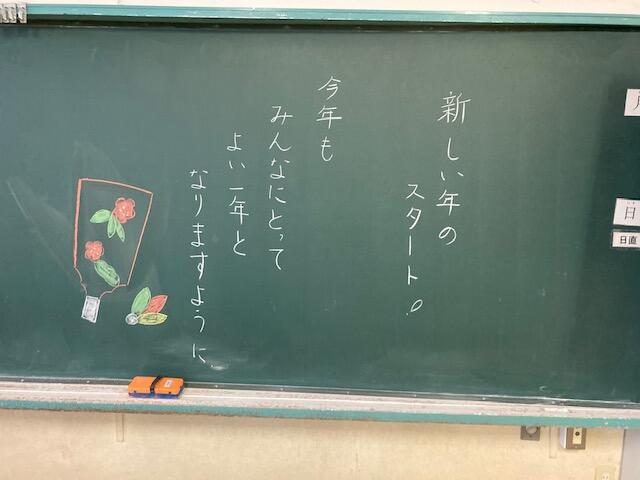 新しい年の
スタート!
今年も
みんなにとって
よい一年と
なりますように
日
日直